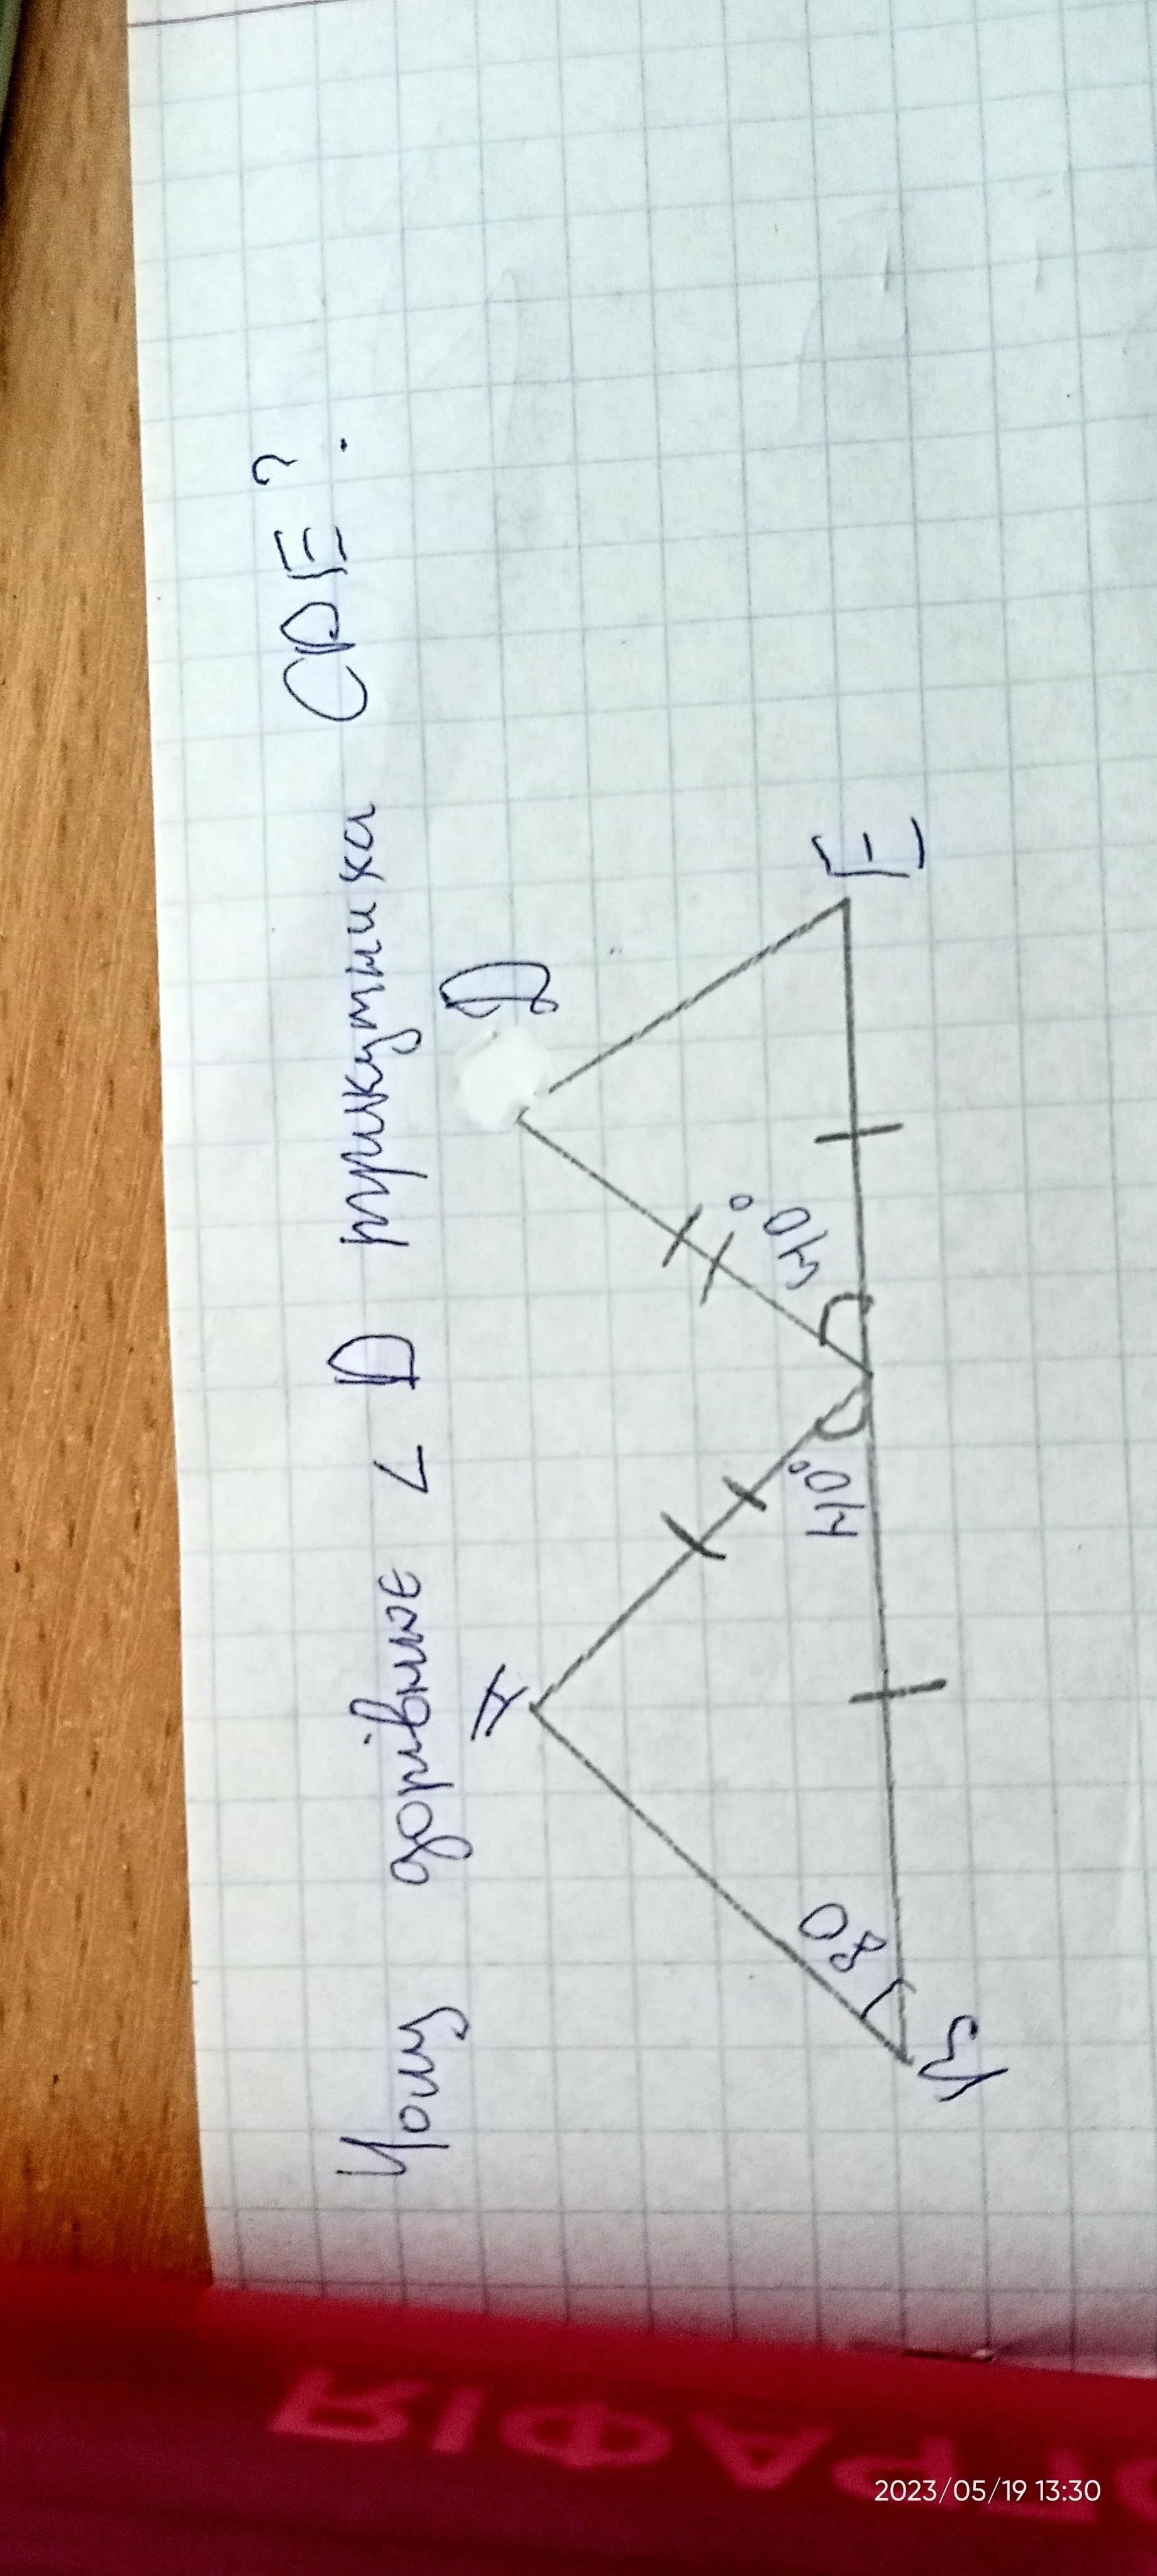 Чому дорівнює ∠ D трикутника CDE?
A
D
80
40°
40°
E
ГРАФІЯ
2023/05/19 13:30